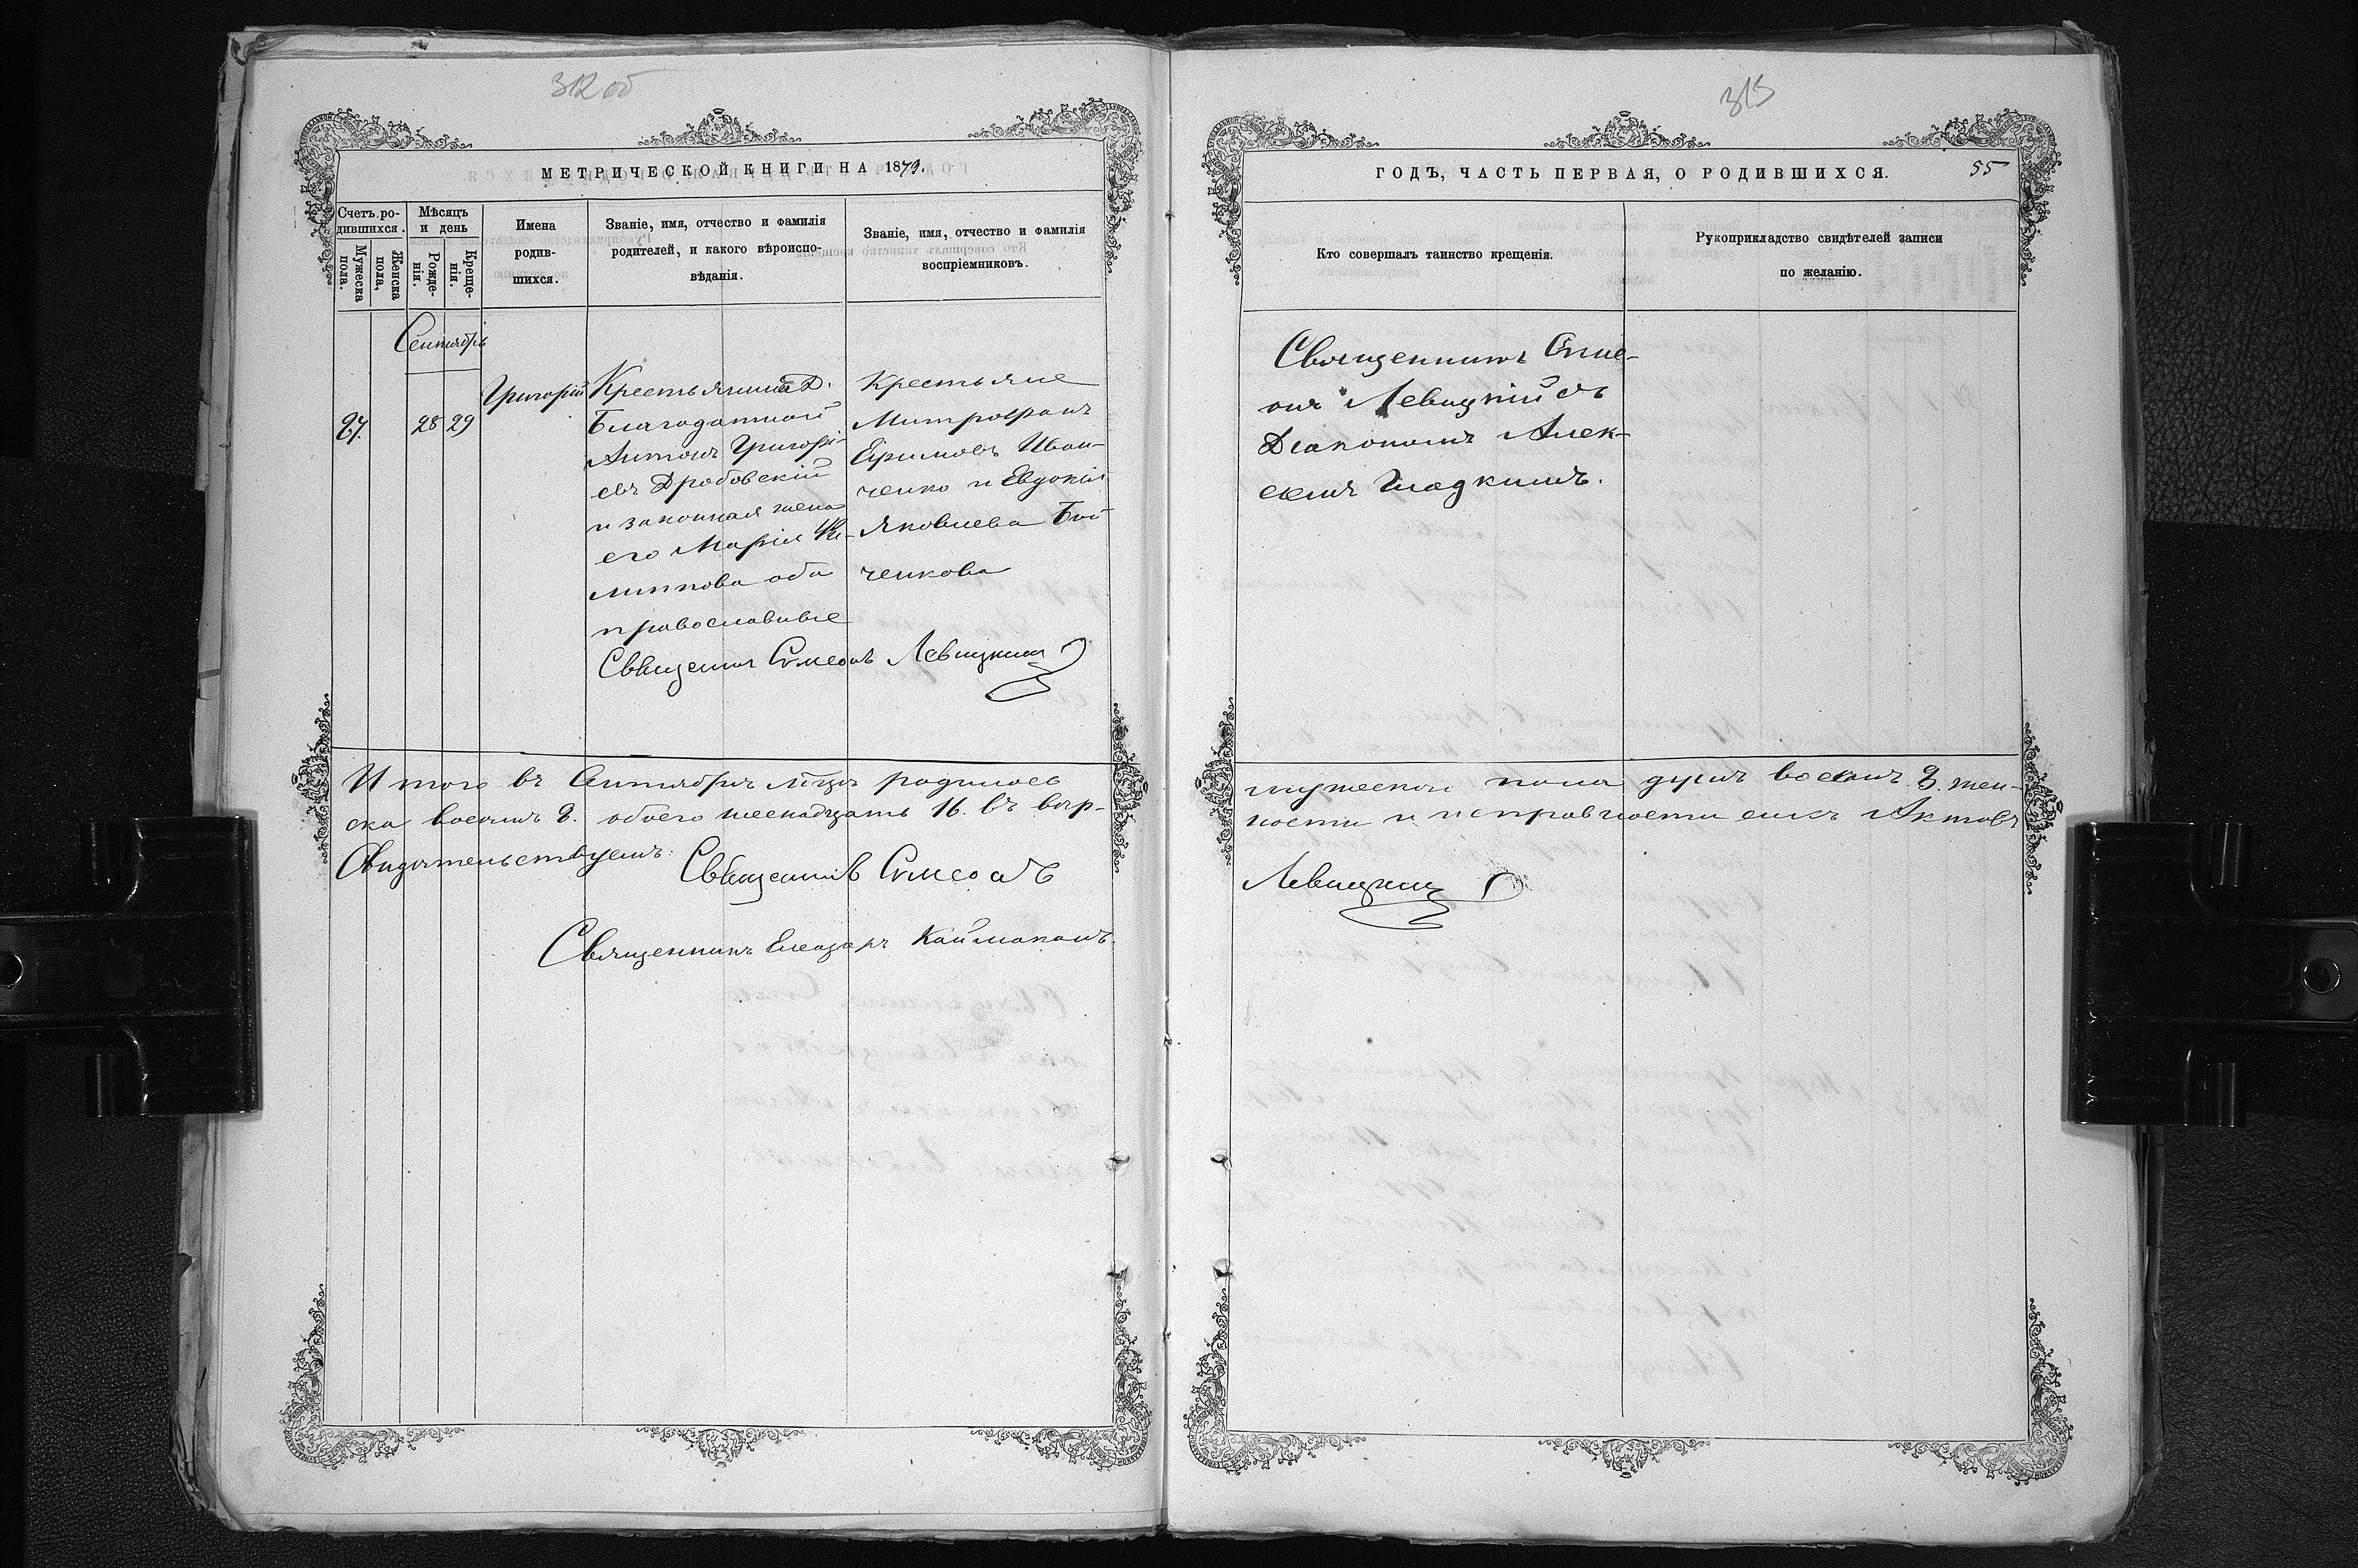 312 об
МЕТРИЧЕСКОЙ КНИГИ НА 1879.
Счетъ ро-
дившихся.
Мужеска
пола.
Женска
пола.
Мѣсяцъ
и день
Рожде-
нія.
Креще-
нія.
Имена
родив-
шихся.
Званіе, имя, отчество и фамилія
родителей, и какого вѣроиспо-
вѣданія.
Званіе, имя, отчество и фамилія
воспріемниковъ.
Сентябрь
27.
28 29
Григорій
Крестьянинъ Д.
Благодатной
Антонъ Григорі-
евъ Дробовскій
и законная жена
его Марія
оба
православные
Крестьяне
Митрофанъ
Ефимовъ Иван-
ченко и Евдокія
Яковлева Бой-
ченкова
Священникъ Симеонъ Левицкій
Итого въ Сентябрѣ м-цѣ родилось
ска восемь 8. обоего шеснадцать 16. въ вѣр-
Свидѣтельствуемъ:
Священникъ Симеонъ
Священникъ Елеазаръ Каймаканъ.
313
ГОДЪ, ЧАСТЬ ПЕРВАЯ, О РОДИВШИХСЯ.
55
Кто совершалъ таинство крещенія.
Рукоприкладство свидѣтелей записи
по желанію.
Священникъ Симе-
онъ Левицкій съ
Діакономъ Алек-
сѣемъ Гладкимъ.
мужеска пола душъ восемь 8. жен-
ности и исправности сихъ Актовъ
Левицкій